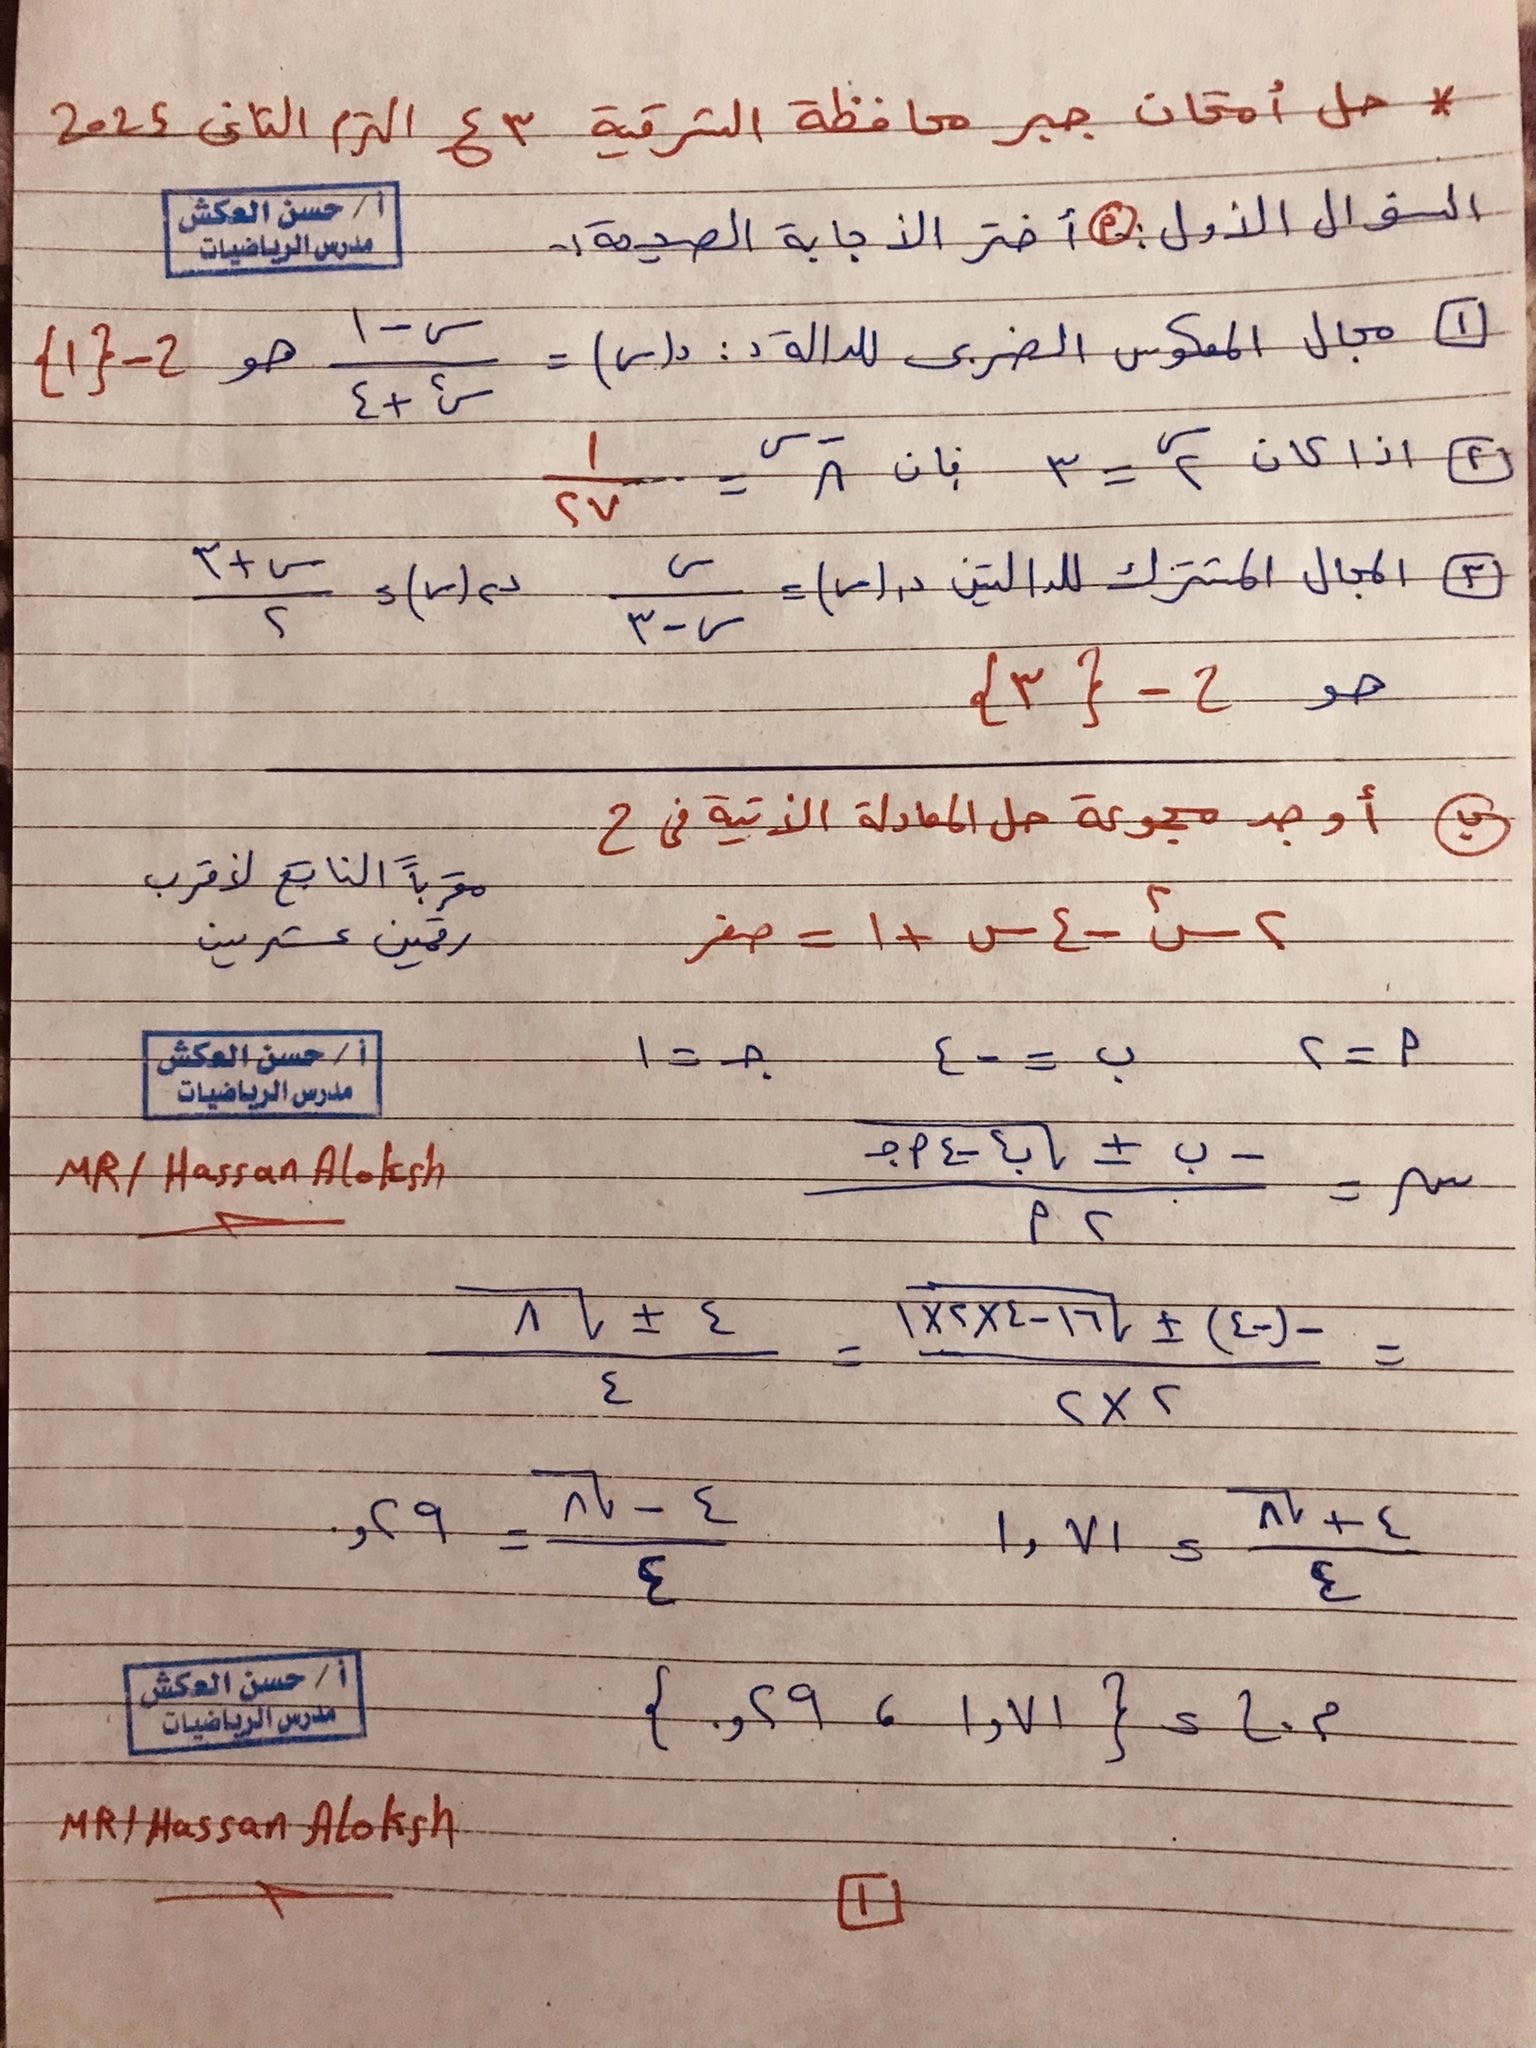 * حل أمتحان جبر محافظة الشرقية ٣ ع الترم الثانى 2025
أ/ حسن العكش
مدرس الرياضيات
السؤال الأول: (م) أختر الأجابة الصحيحة :-
(١) مجال المعكوس الضربى للدالة د: د(س) = (س-١)/(س²+٤) هو ح-{١}
(٢) اذا كان ٢^س = ٣ فإن ٨^-س = ... ١/٢٧
(٣) المجال المشترك للدالتين د١(س) = س/(س-٣) د٢(س) = (س+٣)/٢
هو ح - {٣}
(ب) أوجد مجموعة حل المعادلة الأتية فى ح
٢س² - ٤س + ١ = صفر
مقرباً الناتج لأقرب
رقمين عشريين
م = ٢ ب = -٤ جـ = ١
أ/ حسن العكش
مدرس الرياضيات
س = (-ب ± √(ب²-٤م جـ))/٢م
MR/ Hassan Aloksh
= (-(-٤) ± √(١٦-٤×٢×١))/(٢×٢) = (٤ ± √٨)/٤
(٤+√٨)/٤ = ١,٧١ (٤-√٨)/٤ = ٠,٢٩
م.ح = {١,٧١ ، ٠,٢٩}
أ/ حسن العكش
مدرس الرياضيات
MR/ Hassan Aloksh
١